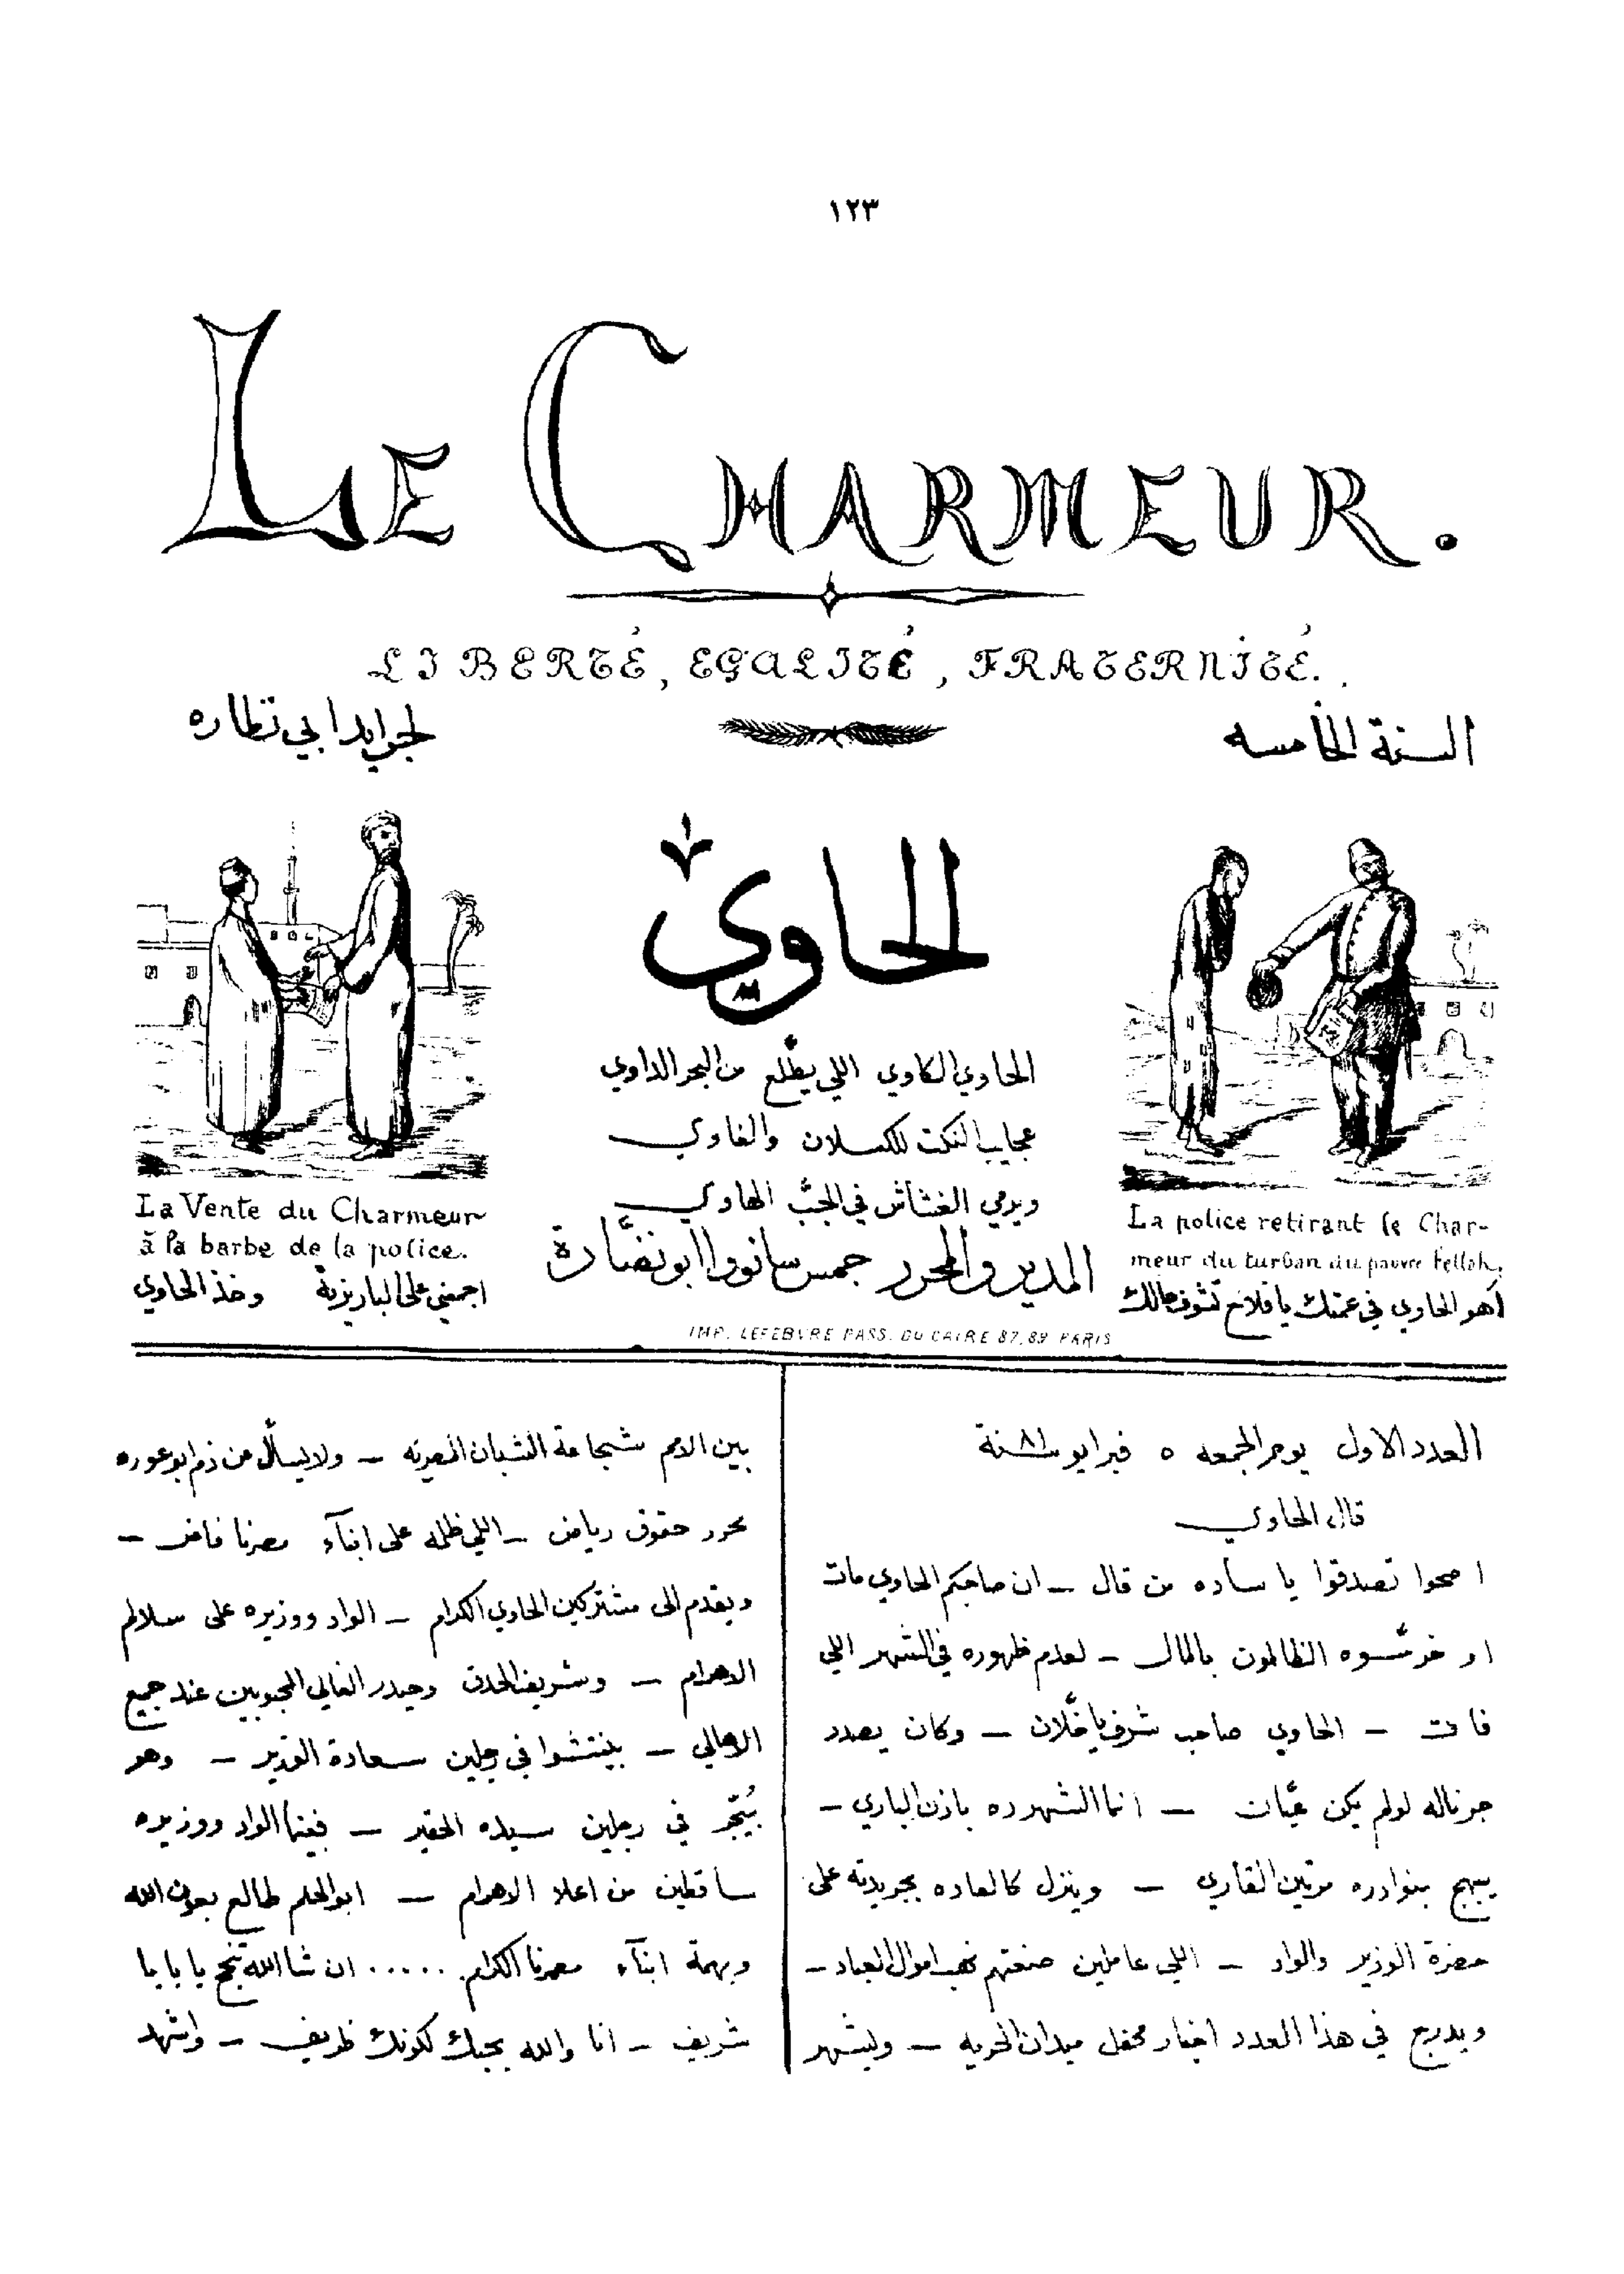 ١٢٣
LE CHARMEUR.
LIBERTÉ, EGALITÉ, FRATERNITÉ.
السنة الخامسه
لجرايد ابي نظاره
الحاوي
الحاوي الكاوي اللي يطلّع من البحر الداوي
عجايب النكت للكسلان والغاوي
ويرمي الغشاش في الجبّ الهاوي
المدير والمحرر جمس سانووا ابو نضّارة
La Vente du Charmeur
à la barbe de la police.
اجمبني على الباريزية وخذ الحاوي
La police retirant le Char-
meur du turban du pauvre Fellah.
أهو الحاوي في عمتك يا فلاح تشوف مالك
IMP. LEFEBVRE PASS. DU CAIRE 87,89 PARIS
العدد الاول يوم الجمعه ٥ فبرايو سنة ٨١
قال الحاوي
اصحوا تصدقوا يا ساده من قال – ان صاحبكم الحاوي مات
او خرسّوه الظالمون بالمال – لعدم ظهوره في الشهر اللي
فات – الحاوي صاحب شرف يا خلّان – وكان يصدر
جرناله لو لم يكن عيّان – انما الشهر ده باذن الباري –
يبهج بنوادره مرتين القاري – وينزل كالعاده بجريدته على
حضرة الوزير والواد – اللي عاملين صنعتهم نهب اموال العباد –
ويدرج في هذا العدد اخبار محفل ميدان الحريه – وليشهر
بين الامم شجاعة الشبان المصريه – ولا يسأل عن ذم ابو عوره
محرر حقوق رياض – اللي ظلمه على ابنآء مصرنا فاض –
ويقدم الى مشتركين الحاوي الكرام – الواد ووزيره على سلالم
الاهرام – وشريف الحدق وحيدر الغالي المحبوبين عند جميع
الاهالي – في رجلين سعادة الوزير – وهو
في رجلين سيده الحقير – الواد ووزيره
ساقطين من اعلا الاهرام – ابو الحلم طالع بعون الله
وبهمة ابنآء مصرنا الكرام ..... ان شا الله تنجح يا بابا
شريف – انا والله بحبك لكونك ظريف – واشهد